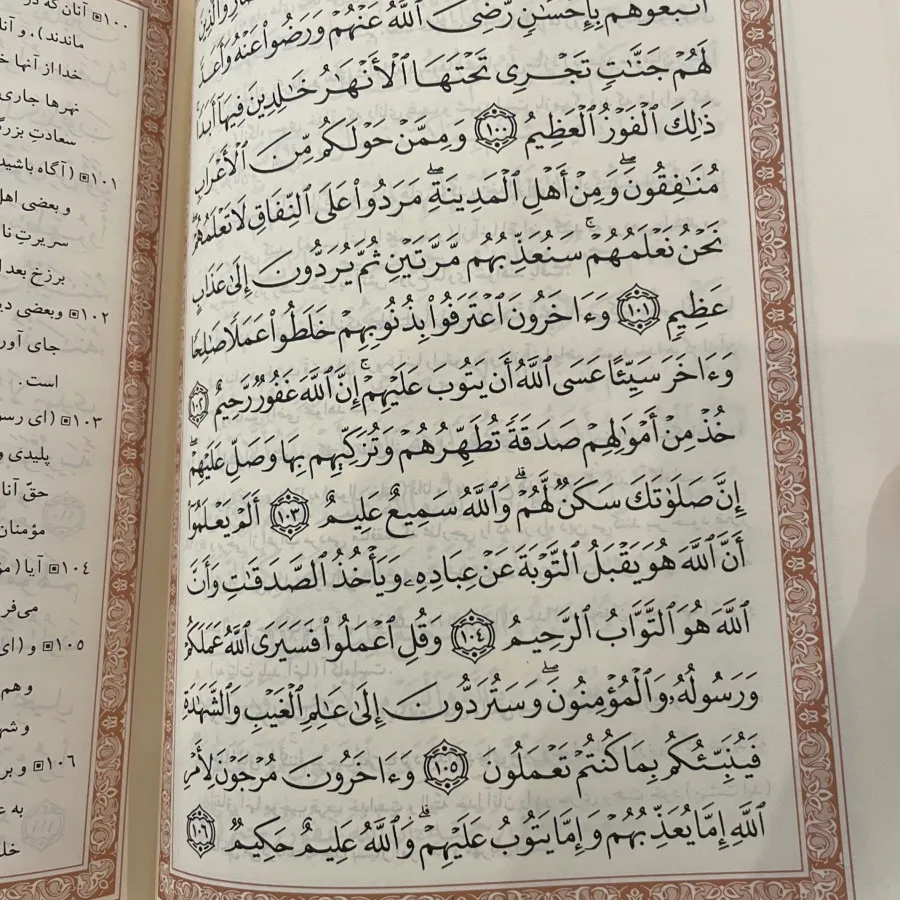 ٱتَّبَعُوهُم بِإِحْسَٰنٍ رَّضِىَ ٱللَّهُ عَنْهُمْ وَرَضُوا۟ عَنْهُ وَأَعَدَّ
لَهُمْ جَنَّٰتٍ تَجْرِى تَحْتَهَا ٱلْأَنْهَٰرُ خَٰلِدِينَ فِيهَآ أَبَدًا
ذَٰلِكَ ٱلْفَوْزُ ٱلْعَظِيمُ ١٠٠ وَمِمَّنْ حَوْلَكُم مِّنَ ٱلْأَعْرَابِ
مُنَٰفِقُونَ ۖ وَمِنْ أَهْلِ ٱلْمَدِينَةِ ۖ مَرَدُوا۟ عَلَى ٱلنِّفَاقِ لَا تَعْلَمُهُمْ ۖ
نَحْنُ نَعْلَمُهُمْ ۚ سَنُعَذِّبُهُم مَّرَّتَيْنِ ثُمَّ يُرَدُّونَ إِلَىٰ عَذَابٍ
عَظِيمٍ ١٠١ وَءَاخَرُونَ ٱعْتَرَفُوا۟ بِذُنُوبِهِمْ خَلَطُوا۟ عَمَلًا صَٰلِحًا
وَءَاخَرَ سَيِّئًا عَسَى ٱللَّهُ أَن يَتُوبَ عَلَيْهِمْ ۚ إِنَّ ٱللَّهَ غَفُورٌ رَّحِيمٌ ١٠٢
خُذْ مِنْ أَمْوَٰلِهِمْ صَدَقَةً تُطَهِّرُهُمْ وَتُزَكِّيهِم بِهَا وَصَلِّ عَلَيْهِمْ ۖ
إِنَّ صَلَوٰتَكَ سَكَنٌ لَّهُمْ ۗ وَٱللَّهُ سَمِيعٌ عَلِيمٌ ١٠٣ أَلَمْ يَعْلَمُوٓا۟
أَنَّ ٱللَّهَ هُوَ يَقْبَلُ ٱلتَّوْبَةَ عَنْ عِبَادِهِۦ وَيَأْخُذُ ٱلصَّدَقَٰتِ وَأَنَّ
ٱللَّهَ هُوَ ٱلتَّوَّابُ ٱلرَّحِيمُ ١٠٤ وَقُلِ ٱعْمَلُوا۟ فَسَيَرَى ٱللَّهُ عَمَلَكُمْ
وَرَسُولُهُۥ وَٱلْمُؤْمِنُونَ ۖ وَسَتُرَدُّونَ إِلَىٰ عَٰلِمِ ٱلْغَيْبِ وَٱلشَّهَٰدَةِ
فَيُنَبِّئُكُم بِمَا كُنتُمْ تَعْمَلُونَ ١٠٥ وَءَاخَرُونَ مُرْجَوْنَ لِأَمْرِ
ٱللَّهِ إِمَّا يُعَذِّبُهُمْ وَإِمَّا يَتُوبُ عَلَيْهِمْ ۗ وَٱللَّهُ عَلِيمٌ حَكِيمٌ ١٠٦
١٠٠ آنان که در
ماندند)، و آنا
خدا از آنها خ
نهرها جاری
سعادتِ بزرگ
١٠١ (آگاه باشید
و بعضی اهل
سریرتِ نا
برزخ بعد ا
١٠٢ و بعضی دی
جای آور
است.
١٠٣ (ای رسو
پلیدی و
حقّ آنا
مؤمنان
١٠٤ آیا (مؤ
می‌فر
١٠٥ و (ای
و هم
و شه
١٠٦ و بر
به ع
خلـ